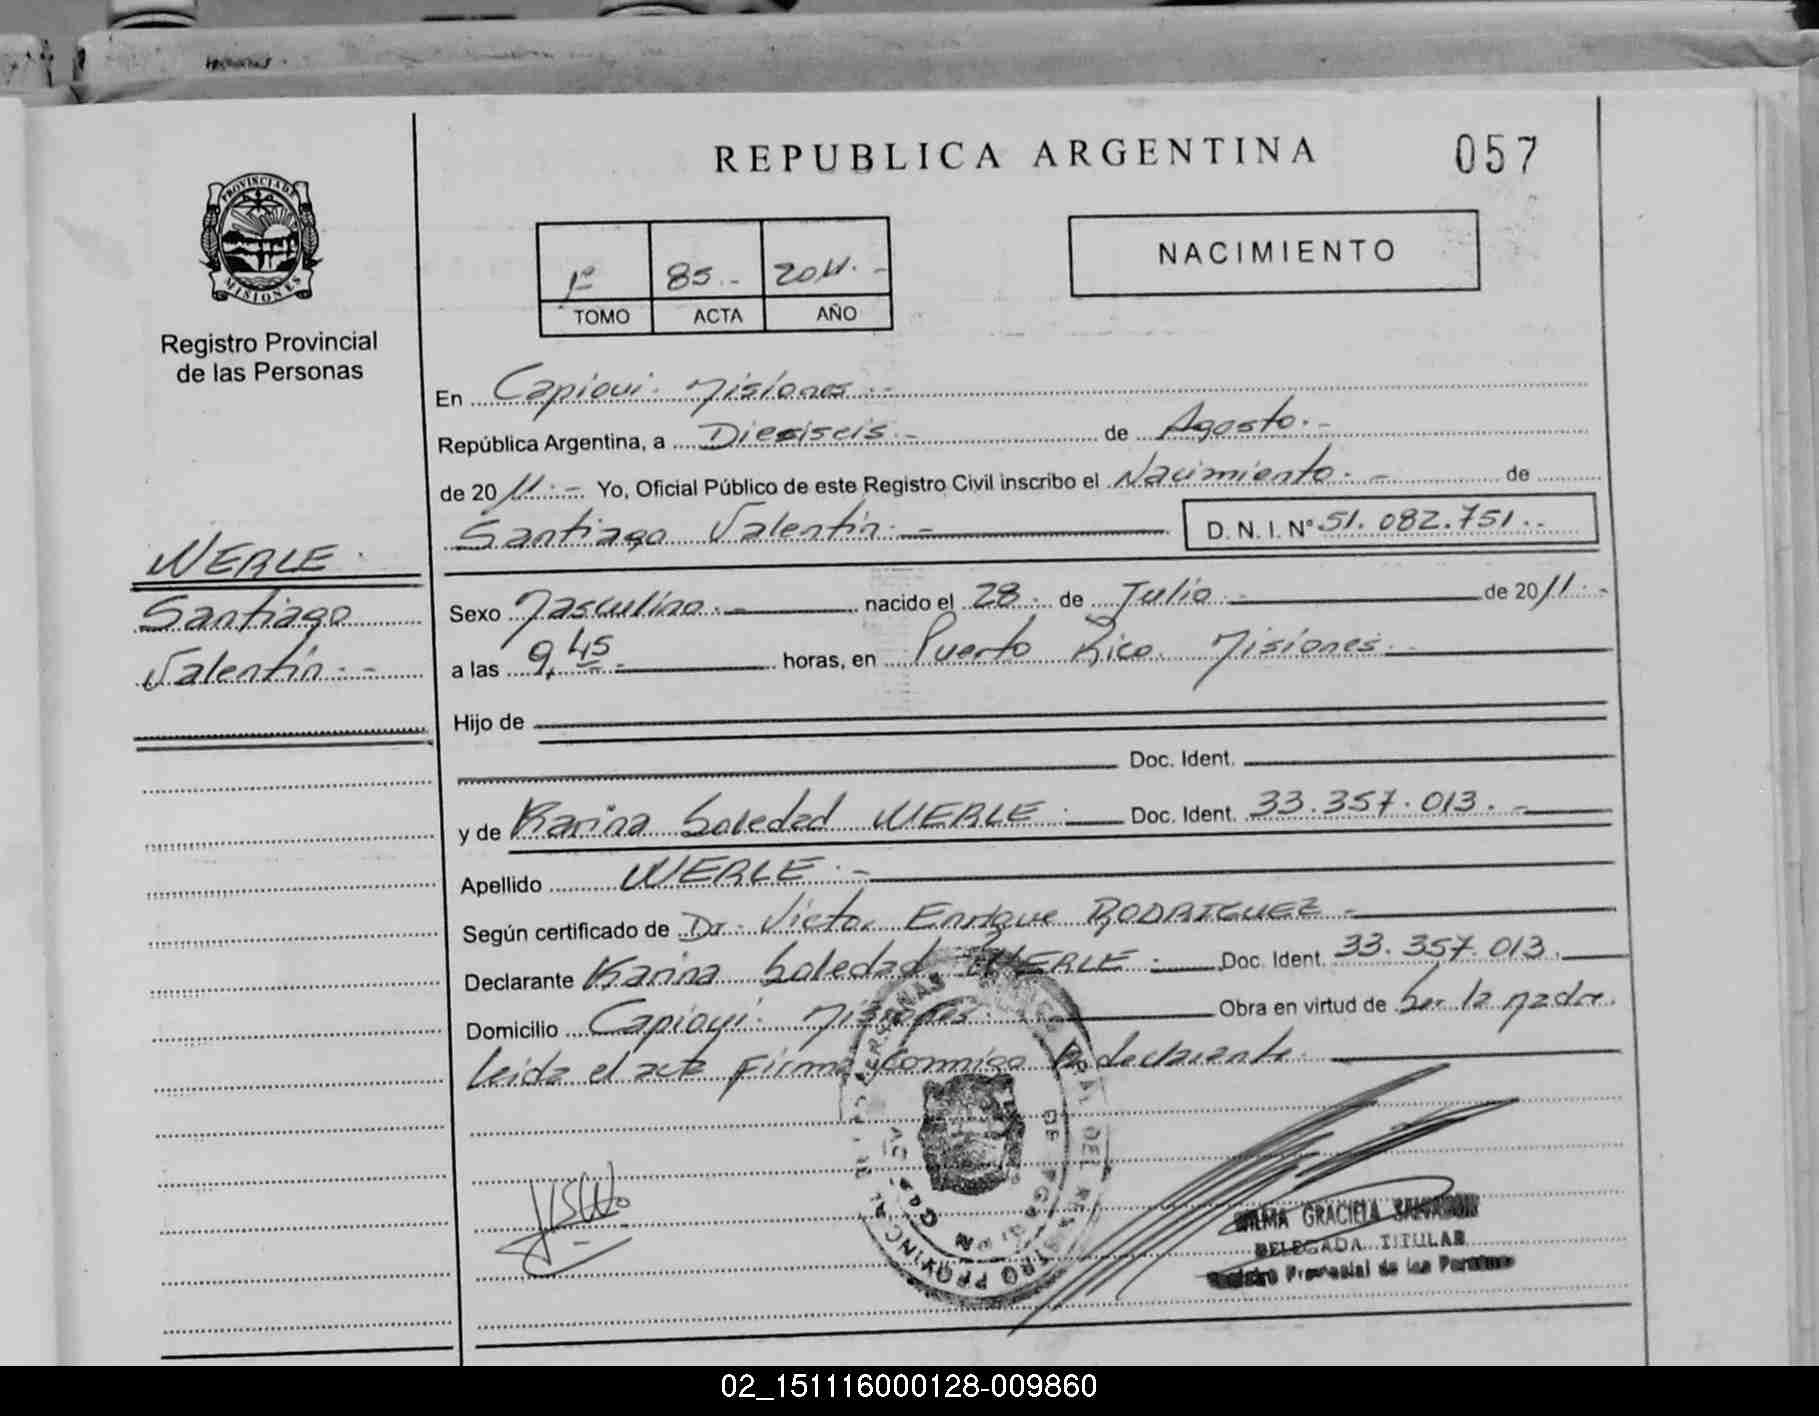 REPUBLICA ARGENTINA
057
PROVINCIA DE
MISIONES
Registro Provincial
de las Personas
1º 85.- 2011.-
TOMO ACTA AÑO
NACIMIENTO
En Capioví. Misiones.-
República Argentina, a Dieciseis.- de Agosto.-
de 2011.- Yo, Oficial Público de este Registro Civil inscribo el Nacimiento.- de
Santiago Valentín.- D.N.I. Nº 51.082.751.-
WERLE.
Santiago
Valentín.-
Sexo Masculino.- nacido el 28. de Julio.- de 2011.-
a las 9,45.- horas, en Puerto Rico. Misiones.
Hijo de
Doc. Ident.
y de Karina Soledad WERLE.- Doc. Ident. 33.357.013.-
Apellido WERLE.-
Según certificado de Dr. Victor Enrique RODRIGUEZ.-
Declarante Karina Soledad WERLE.- Doc. Ident. 33.357.013.
Domicilio Capioví. Misiones. Obra en virtud de Ser la madre.
Leida el acta firma conmigo la declarante.
GRACIELA
DELEGADA TITULAR
Registro Provincial de las Personas
02_151116000128-009860